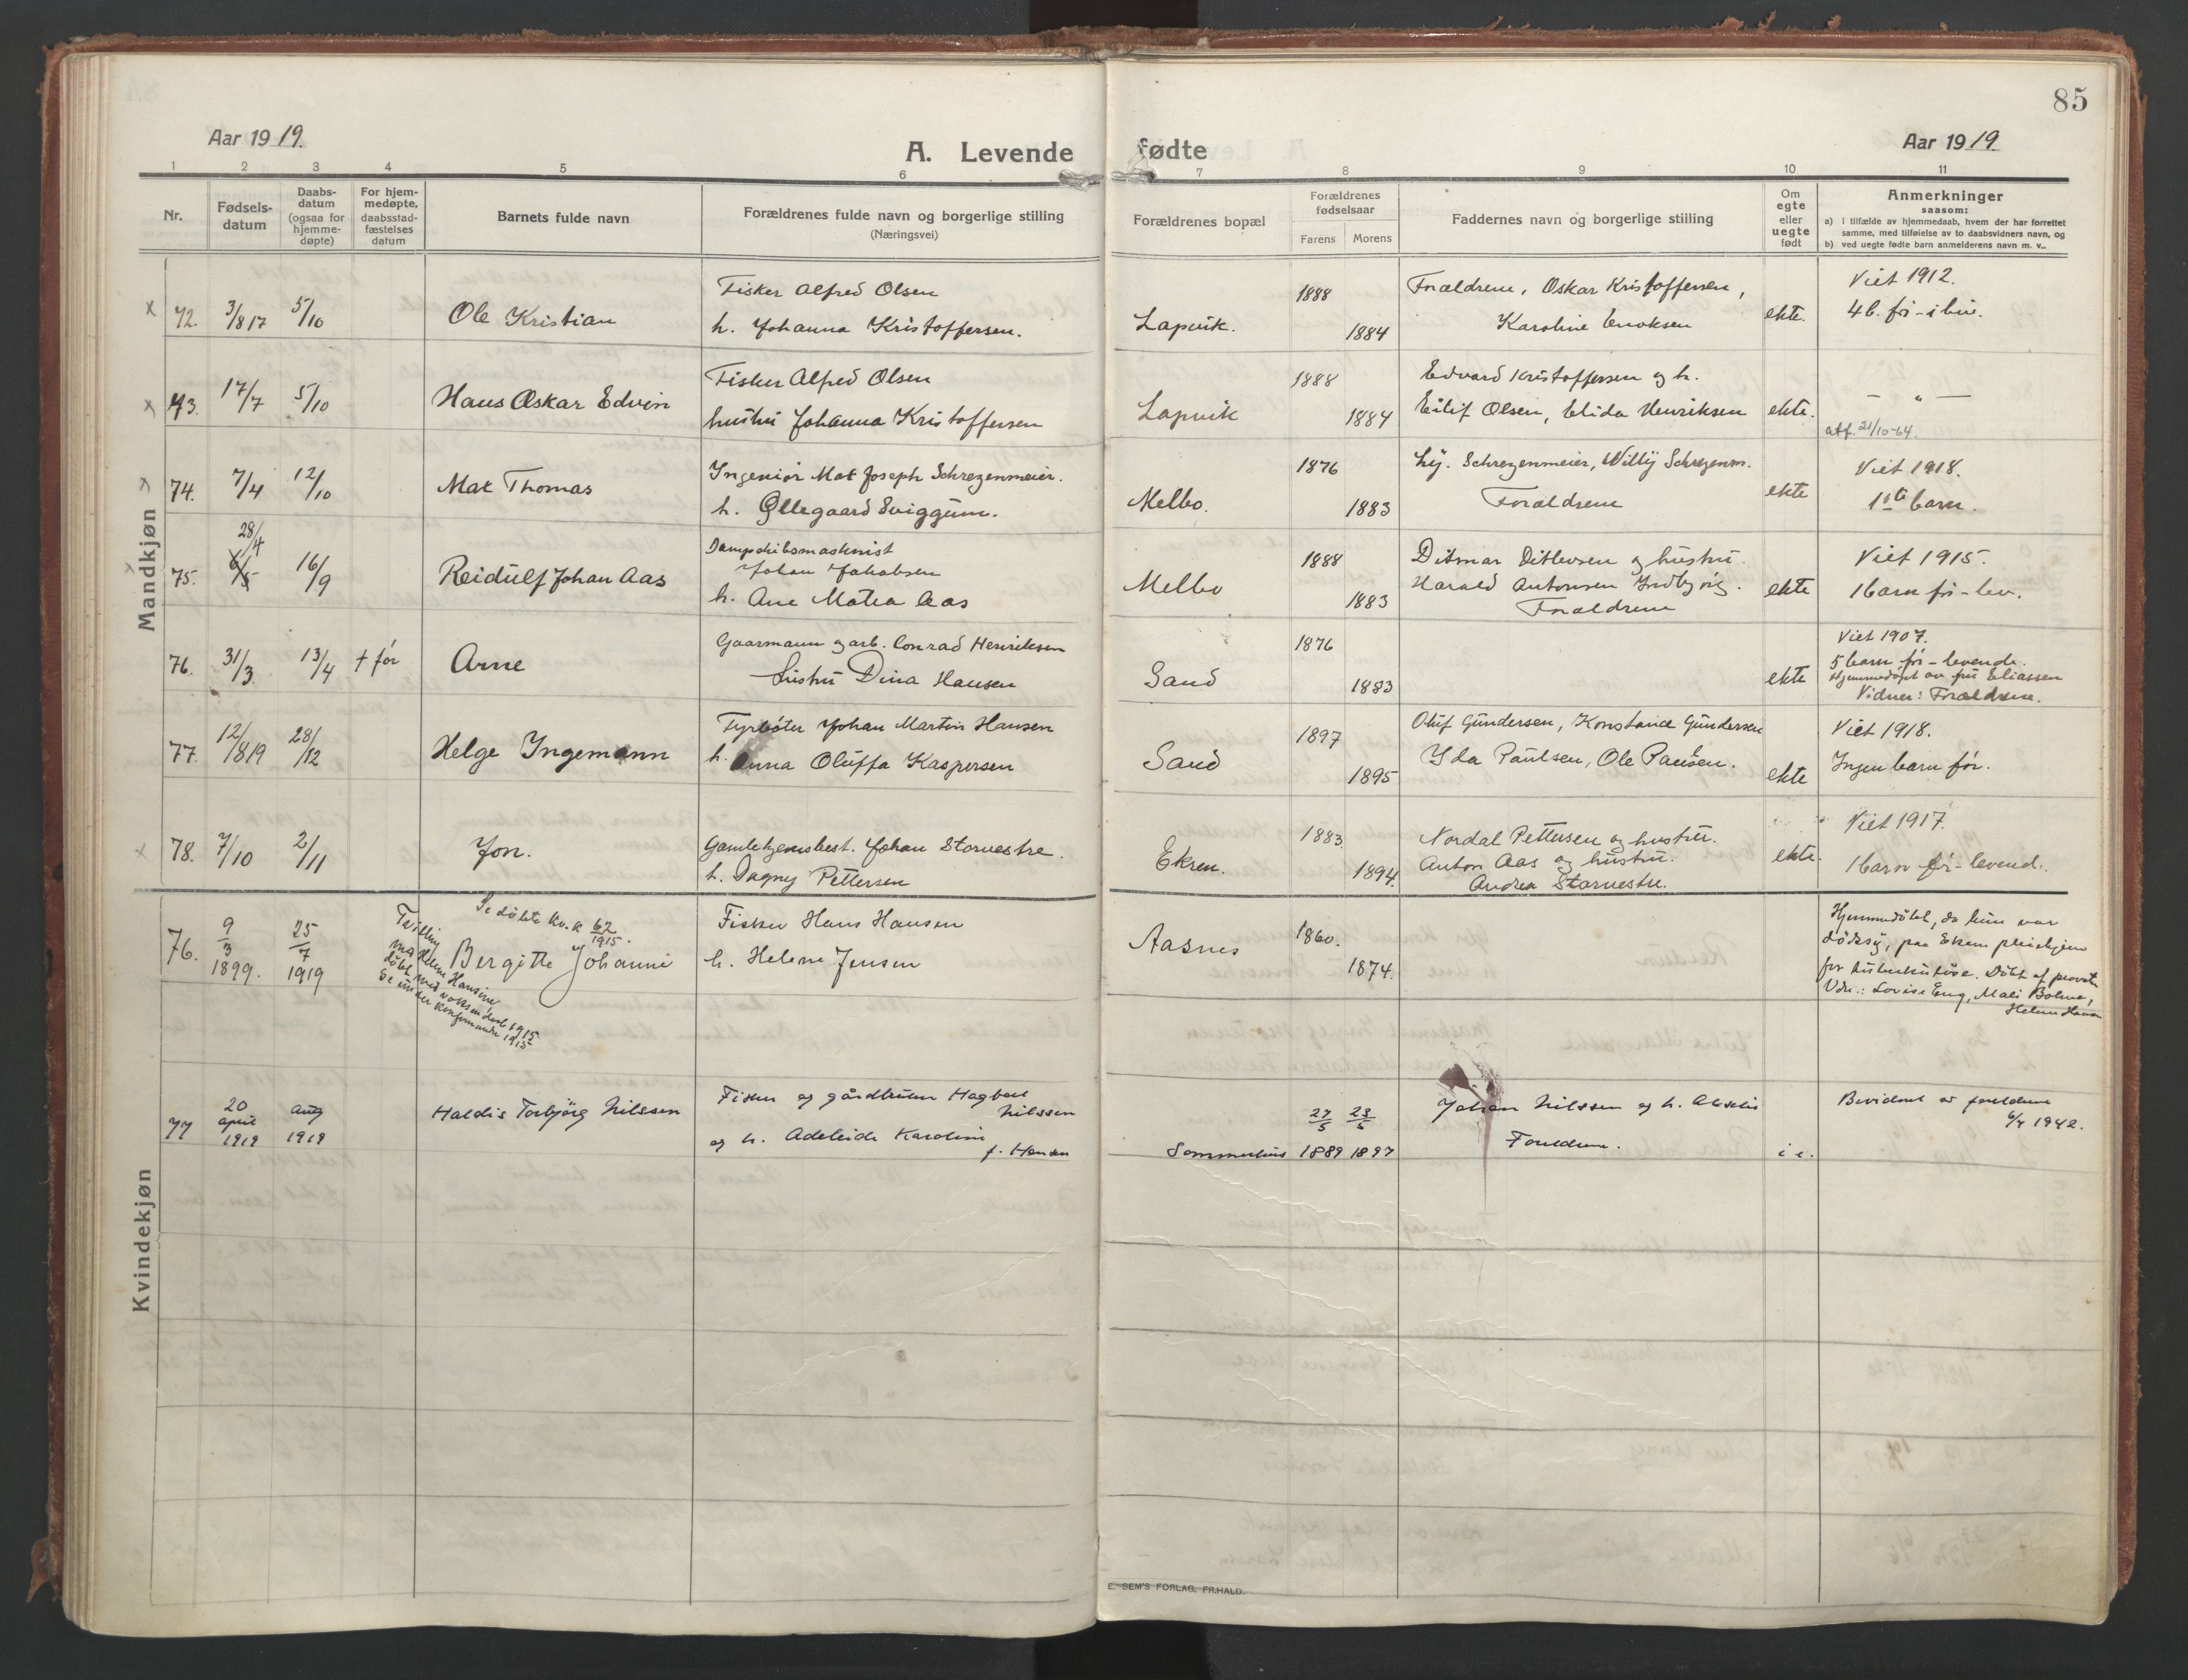 85
Aar 1919.
A. Levende
fødte
Aar 1919
1 2 3 4 5 6 7 8 9 10 11
Nr.
Fødsels-
datum
Daabs-
datum
(ogsaa for
hjemme-
døpte)
For hjem-
medøpte,
daabsstad-
fæstelses
datum
Barnets fulde navn
Forældrenes fulde navn og borgerlige stilling
(Næringsvei)
Forældrenes bopæl
Forældrenes
fødselsaar
Farens Morens
Faddernes navn og borgerlige stilling
Om
egte
eller
uegte
født
Anmerkninger
saasom:
a) i tilfælde av hjemmedaab, hvem der har forrettet
samme, med tilføielse av to daabsvidners navn, og
b) ved uegte fødte barn anmelderens navn m. v..
Mandkjøn
x 72. 3/8 17 5/10
Ole Kristian
Fisker Alfred Olsen
h. Johanna Kristoffersen.
Lapvik.
1888
1884
Forældrene, Oskar Kristoffersen,
Karoline Enoksen
ekte.
Viet 1912.
4 b. før - i live.
x 73. 17/7 5/10
Hans Oskar Edvin
Fisker Alfred Olsen
hustru Johanna Kristoffersen
Lapvik
1888
1884
Edvard Kristoffersen og h.
Eilif Olsen, Elida Henriksen
ekte.
— " —
att. 21/10-64.
x 74. 7/4 12/10
Max Thomas
Ingeniør Max Joseph Schrezenmeier.
h. Ollegaard Sviggum.
Melbo.
1876
1883
Schrezenmeier, Willy Schrezenm.
Forældrene
ekte
Viet 1918.
1ste barn.
x 75. 28/4 6/5 16/9
Reidulf Johan Aas
Dampskibsmaskinist
Johan Jakobsen
h. Ane Matea Aas
Melbo
1888
1883
Ditmar Ditlevsen og hustru.
Harald Antonsen Indbjør.
Forældrene
ekte
Viet 1915.
1 barn før - lev.
76. 31/3 13/4 + før
Arne
Gaarmann og arb. Conrad Henriksen
hustru Dina Hansen
Sand
1876
1883
ekte
Viet 1907.
5 barn før - levende.
Hjemmedøpt av fru Eliassen
Vidner: Forældrene.
77. 12/8 19 28/12
Helge Ingemann
Fyrbøter Johan Martin Hansen
h. Anna Oluffa Kaspersen
Sand
1897
1895
Oluf Gundersen, Konstance Gundersen
Ida Paulsen, Ole Paulsen.
ekte
Viet 1918.
Ingen barn før.
x 78. 7/10 2/11
Jon.
Gamlehjemsbest. Johan Storvestre.
h. Dagny Pettersen
Eksen.
1883.
1894.
Nordal Pettersen og hustru.
Anton Aas og hustru.
Andrea Storvestre.
ekte.
Viet 1917.
1 barn før - levend.
Kvindekjøn
76. 9/3 1899. 25/7 1919
Tvilling
m. Helene Hansine,
døbt ved voksendaab 1915
Se under konfirmander 1915
Se døbte kv.k 62/1915.
Bergitte Johanne
Fisker Hans Hansen
h. Helene Jensen
Aasnes
1860.
1874.
Hjemmedøbt, da hun var
dødssyg, paa Eksem pleiehjem
for tuberkuløse. Døbt af provsten
Vdn.: Lovise Eng, Mali Bolme,
Helene Hansen
77 20 april 1919 aug 1919
Haldis Torbjørg Nilssen
Fisker og gårdbruker Hagbart
Nilssen
og h. Adeleide Karoline
f. Hansen
Sommerhus
27/5 1889 23/5 1897
Johan Nilssen og h. Akselie
Foreldrene.
i e.
Bevidnet av foreldrene
6/4 1942.
E. SEM'S FORLAG, FR.HALD.